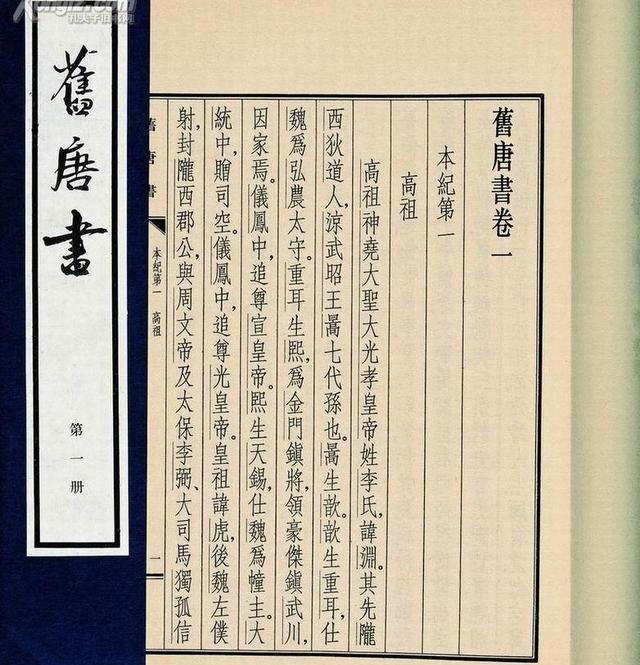 舊唐書
第一册
舊唐書卷一
本紀第一
高祖
高祖神堯大聖大光孝皇帝姓李氏，諱淵。其先隴
西狄道人，涼武昭王暠七代孫也。暠生歆。歆生重耳，仕
魏爲弘農太守。重耳生熙，爲金門鎮將，領豪傑鎮武川，
因家焉。儀鳳中，追尊宣皇帝。熙生天錫，仕魏爲幢主。大
統中，贈司空。儀鳳中，追尊光皇帝。皇祖諱虎，後魏左僕
射，封隴西郡公，與周文帝及太保李弼、大司馬獨孤信
舊唐書
本紀第一 高祖
一
孔夫子旧书网